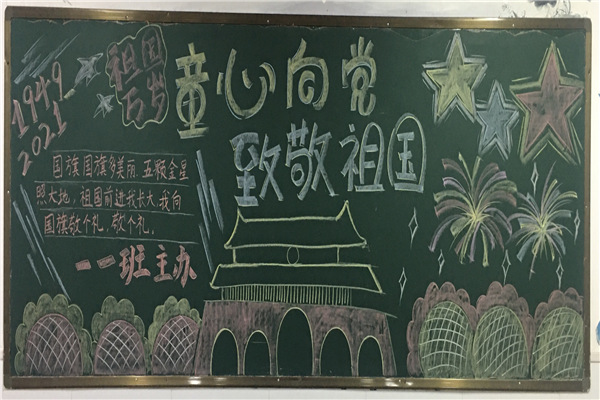 1949
2021
祖国
万岁
童心向党
致敬祖国
国旗国旗多美丽.五颗金星
照大地,祖国前进我长大,我向
国旗敬个礼,敬个礼.
一一班主办